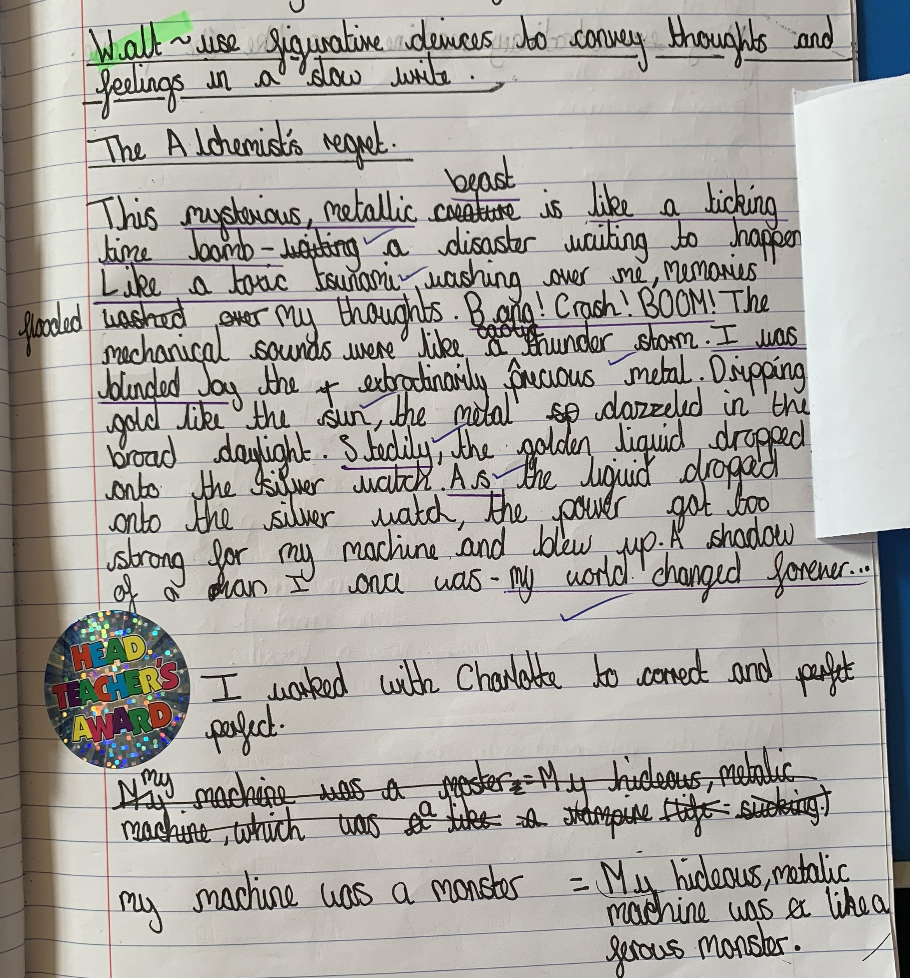 Walt ~ use figurative devices to convey thoughts and
feelings in a slow write.
The Alchemist's regret.
beast
This mysterious, metallic creature is like a ticking
time bomb - waiting a disaster waiting to happen
Like a toxic tsunami washing over me, memories
flooded washed over my thoughts. Bang! Crash! BOOM! The
mechanical sounds were like a thunder storm. I was
blinded by the extrodinarily precious metal. Dripping
gold like the sun, the metal so dazzeled in the
broad daylight. Stedily, the golden liquid dropped
onto the silver watch. As the liquid dropped
onto the silver watch, the power got too
strong for my machine and blew up. A shadow
of a man I once was - my world changed forever...
HEAD
TEACHER'S
AWARD
I worked with Charlotte to correct and perfet
perfect.
my
My machine was a moster = My hideous, metalic
machine, which was a like a vampire (life-sucking)
my machine was a monster = My hideous, metalic
machine was a like a
ferous monster.